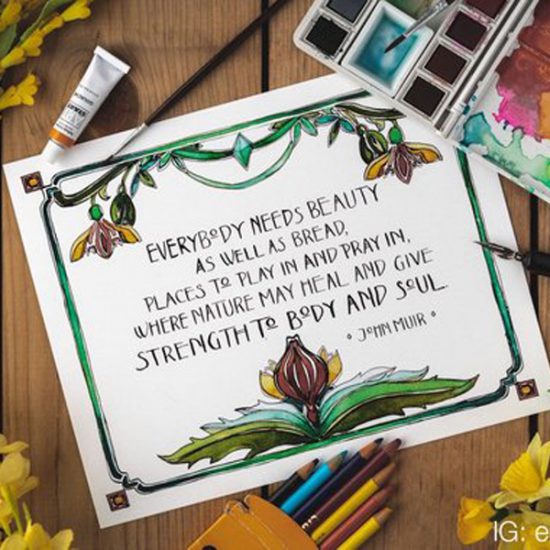 EVERYBODY NEEDS BEAUTY
AS WELL AS BREAD,
PLACES TO PLAY IN AND PRAY IN,
WHERE NATURE MAY HEAL AND GIVE
STRENGTH TO BODY AND SOUL.
° JOHN MUIR °
IG: e